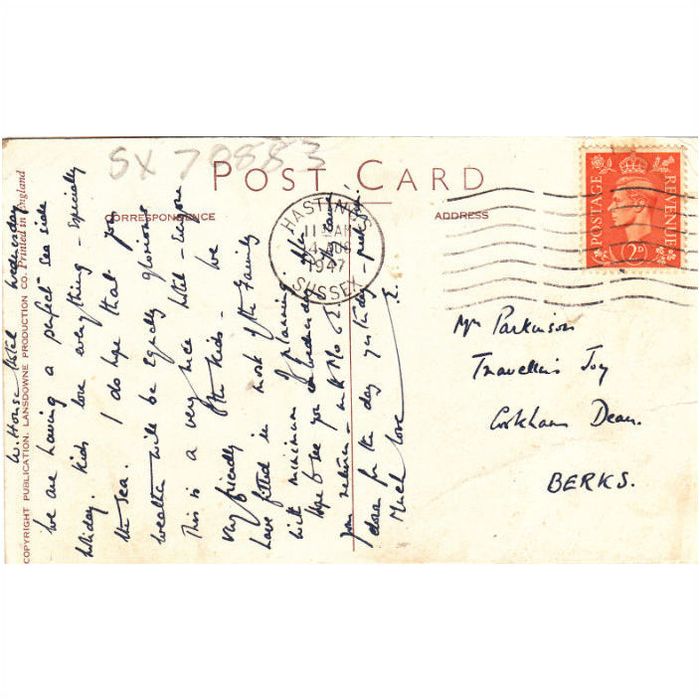 SX 70883
POST CARD
CORRESPONDENCE
ADDRESS
HASTINGS
1947
SUSSEX
POSTAGE
REVENUE
2D
COPYRIGHT PUBLICATION. LANSDOWNE PRODUCTION CO. Printed in England
House Hotel Wednesday
We are having a perfect sea side
holiday. Kids love everything - Especially
the sea. I do hope that you
weather will be Equally glorious
This is a very nice hotel - Everyone
very friendly & the kids - We
have fitted in most of the Family
with minimum of planning.
Hope to see you on Wednesday after
your return - 
down for the day yesterday -
Much love E.
Mrs Parkinson
Travellers Joy
Cookham Dean.
BERKS.